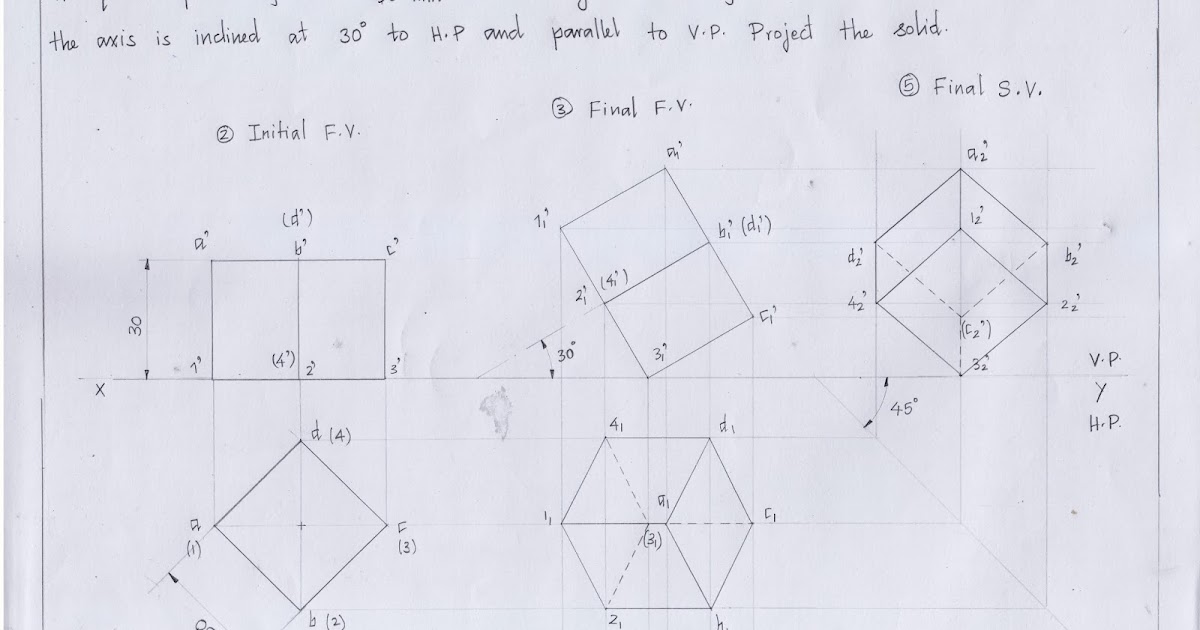 the axis is inclined at 30° to H.P and parallel to V.P. Project the solid.
⑤ Final S.V.
③ Final F.V.
② Initial F.V.
a₁'
a₂'
1₁'
b₁' (d₁')
1₂'
(d')
a' b' c'
d₂' b₂'
2₁' (4₁')
4₂' 2₂'
c₁'
(c₂')
30
30°
3₁'
3₂'
1' (4') 2' 3'
V.P.
X Y
H.P.
45°
d (4)
4₁ d₁
a c
(1) (3)
1₁ a₁ c₁
(3₁)
b (2)
2₁